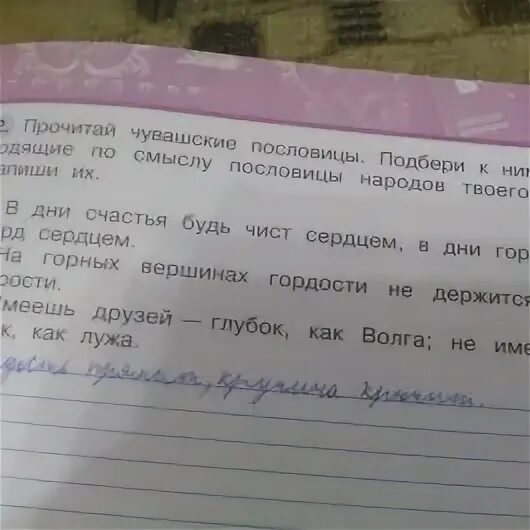 2. Прочитай чувашские пословицы. Подбери к ним
одящие по смыслу пословицы народов твоего
апиши их.
В дни счастья будь чист сердцем, в дни гор
рд сердцем.
На горных вершинах гордости не держится
рости.
меешь друзей — глубок, как Волга; не име
к, как лужа.
кручина крючит.